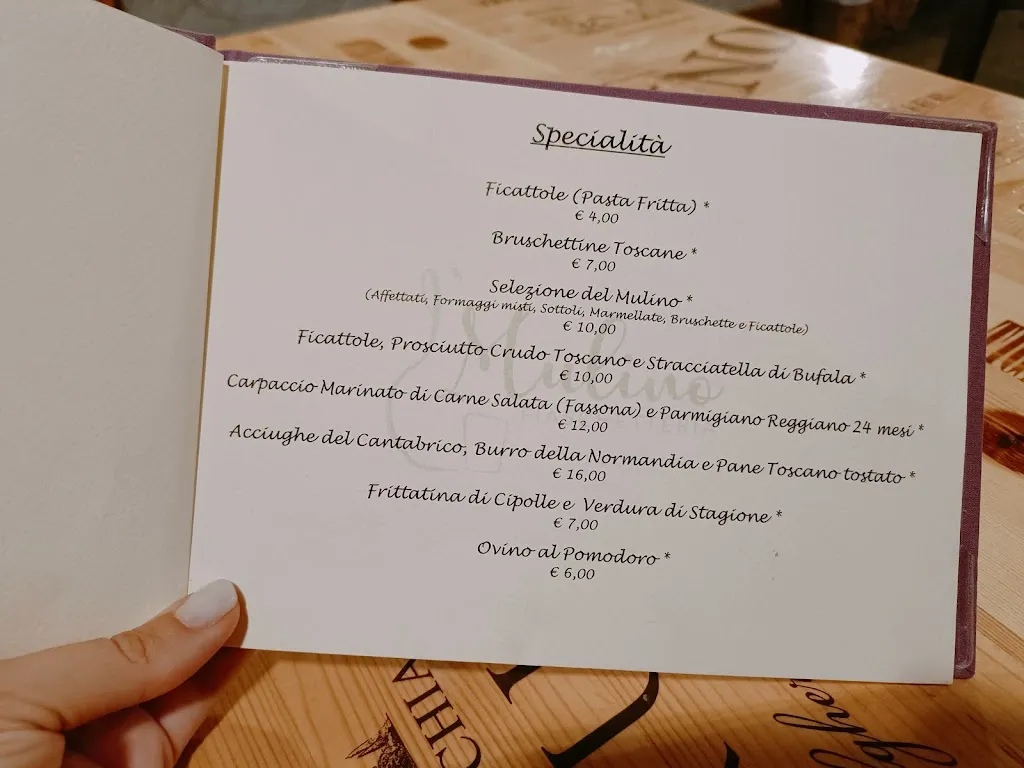 Specialità
Ficattole (Pasta Fritta) *
€ 4,00
Bruschettine Toscane *
€ 7,00
Selezione del Mulino *
(Affettati, Formaggi misti, Sottoli, Marmellate, Bruschette e Ficattole)
€ 10,00
Ficattole, Prosciutto Crudo Toscano e Stracciatella di Bufala *
€ 10,00
Carpaccio Marinato di Carne Salata (Fassona) e Parmigiano Reggiano 24 mesi *
€ 12,00
Acciughe del Cantabrico, Burro della Normandia e Pane Toscano tostato *
€ 16,00
Frittatina di Cipolle e Verdura di Stagione *
€ 7,00
Ovino al Pomodoro *
€ 6,00
Mulino
CHIA